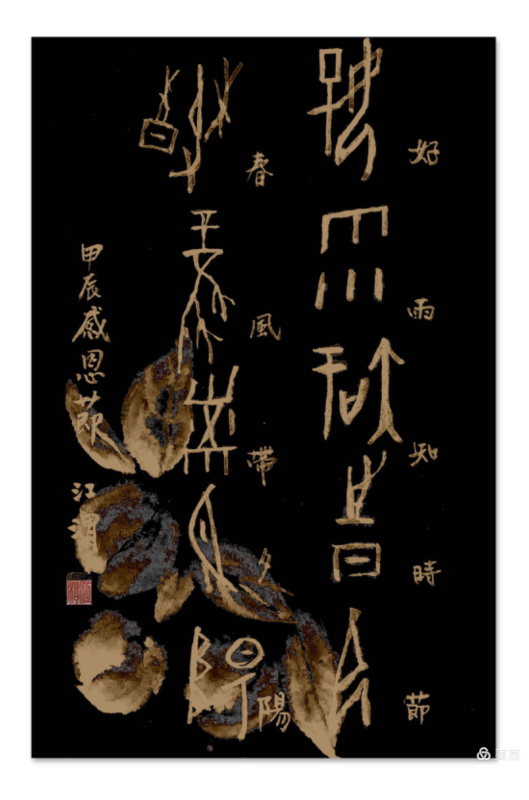 好雨知時節
春風帶夕陽
甲辰感恩节
江湖